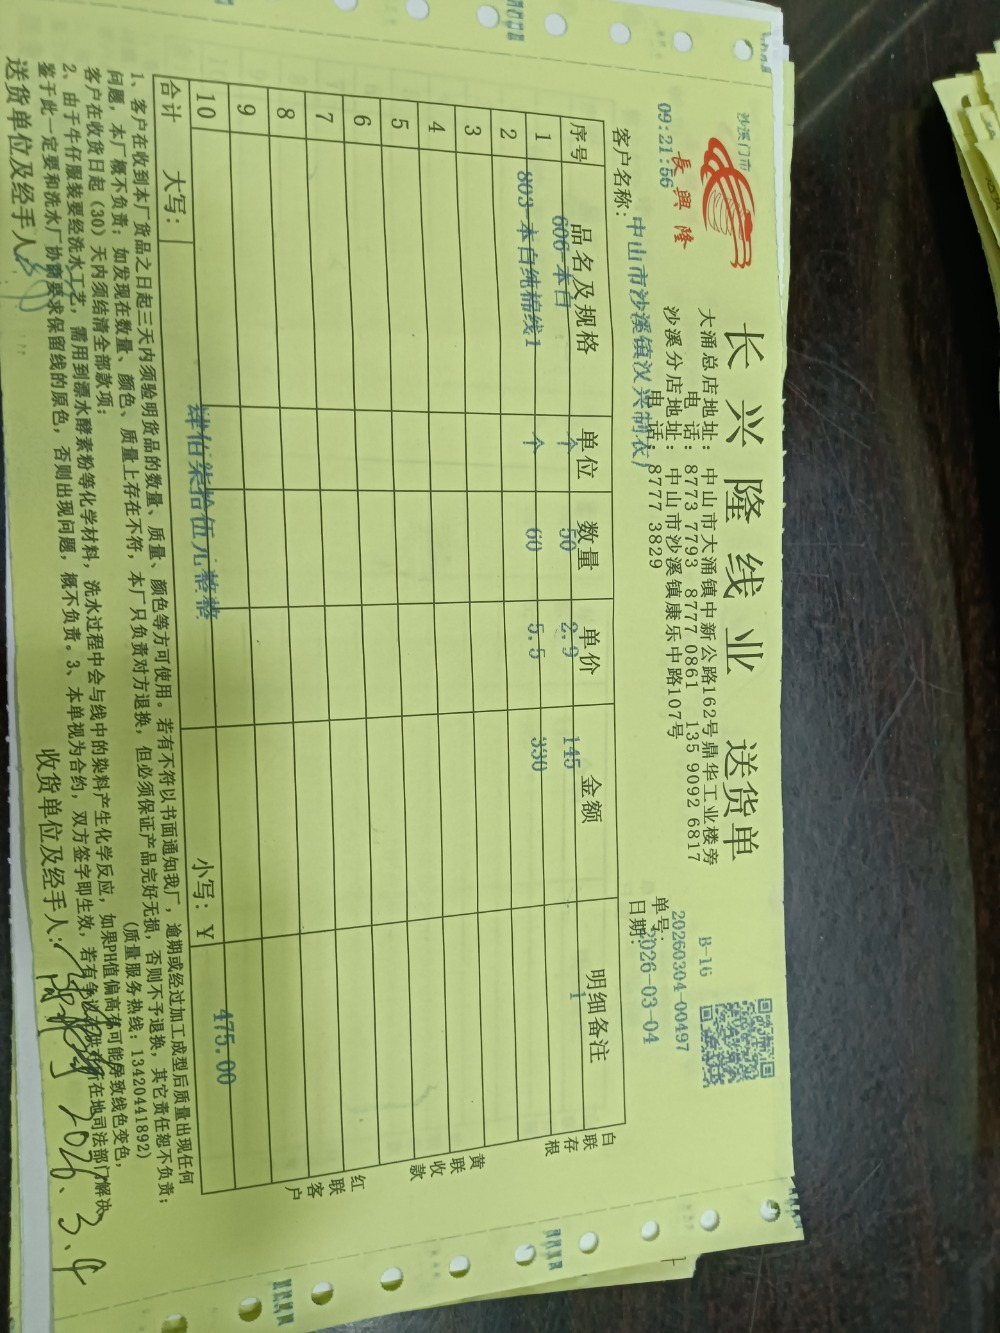 沙溪门市
09:21:56
長興隆
长兴隆线业 送货单
大涌总店地址：中山市大涌镇中新公路162号鼎华工业楼旁
电话：8773 7793 8777 0861 135 9092 6817
沙溪分店地址：中山市沙溪镇康乐中路107号
电话：8777 3829
B-16
单号：20260304-00497
日期：2026-03-04
客户名称：中山市沙溪镇汶兴制衣厂
序号 品名及规格 单位 数量 单价 金额 明细备注
1 606-本白 个 50 2.9 145 1
2 803-本白纯棉线1 个 60 5.5 330
3
4
5
6
7
8
9
10
合计 大写：肆佰柒拾伍元整整 小写：¥ 475.00
白联存根
黄联收款
红联客户
1、客户在收到本厂货品之日起三天内须验明货品的数量、质量、颜色等方可使用。若有不符以书面通知我厂，逾期或经过加工成型后质量出现任何
问题，本厂概不负责；如发现在数量、颜色、质量上存在不符，本厂只负责对方退换，但必须保证产品完好无损，否则不予退换，其它责任恕不负责；
客户在收货日起（30）天内须结清全部款项； （质量服务热线：13420441892）
2、由于牛仔服装要经洗水工艺，需用到漂水酵素粉等化学材料，洗水过程中会与线中的染料产生化学反应，如果PH值偏高有可能导致线色变色，
鉴于此一定要和洗水厂协商要求保留线的原色，否则出现问题，概不负责。3、本单视为合约，双方签字即生效，若有争议在供方所在地司法部门解决
送货单位及经手人： 收货单位及经手人：
2026.3.4